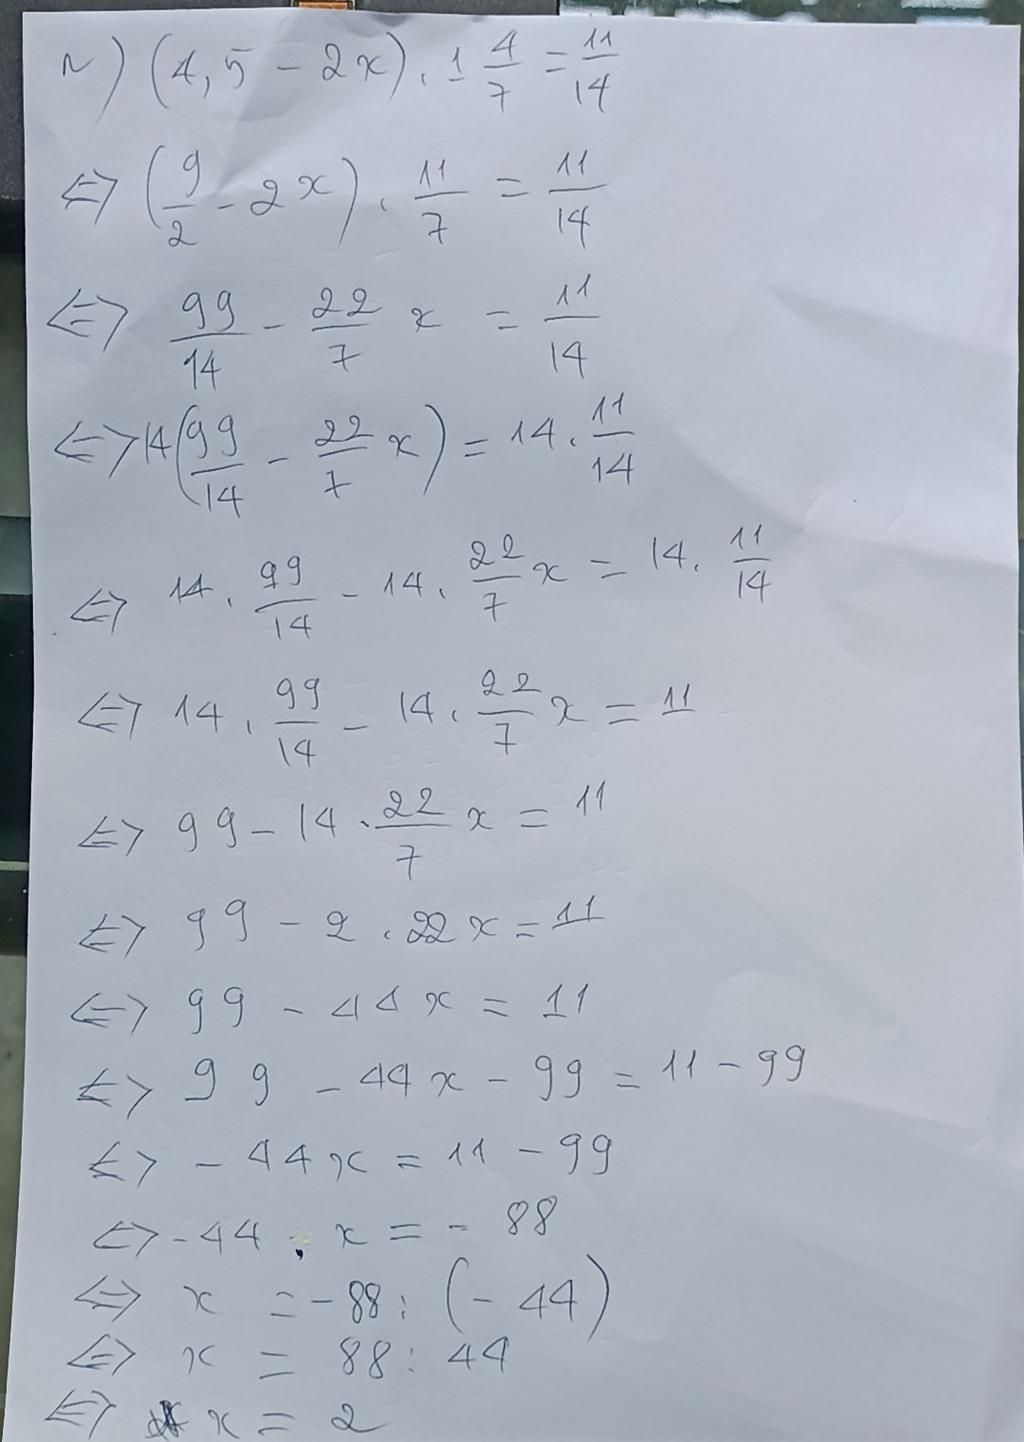 ~) (4,5 - 2x) . 1 4/7 = 11/14
⇔ (9/2 - 2x) . 11/7 = 11/14
⇔ 99/14 - 22/7 x = 11/14
⇔ 14(99/14 - 22/7 x) = 14 . 11/14
⇔ 14 . 99/14 - 14 . 22/7 x = 14 . 11/14
⇔ 14 . 99/14 - 14 . 22/7 x = 11
⇔ 99 - 14 . 22/7 x = 11
⇔ 99 - 2 . 22x = 11
⇔ 99 - 44x = 11
⇔ 99 - 44x - 99 = 11 - 99
⇔ - 44x = 11 - 99
⇔ - 44 . x = - 88
⇔ x = - 88 : (- 44)
⇔ x = 88 : 44
⇔ x = 2